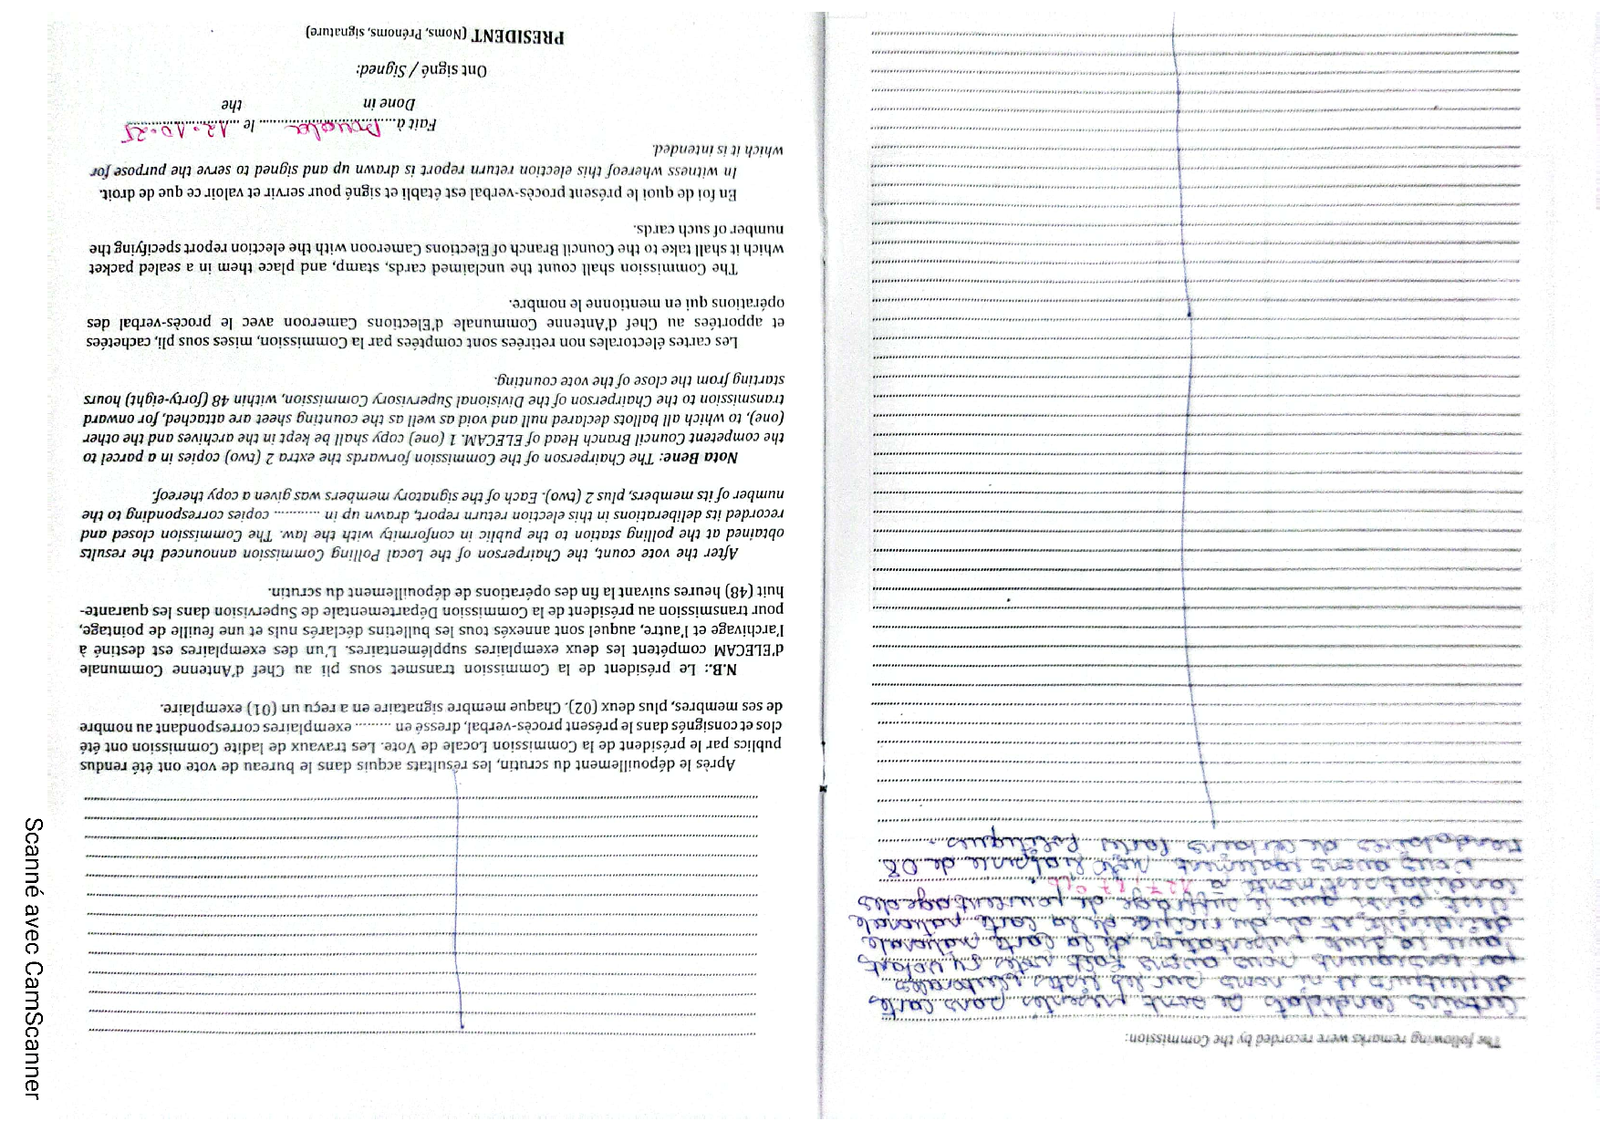 The following remarks were recorded by the Commission:
certains candidats se sont présentés sans carte
d'électeurs et ni noms sur les listes électorales
par conséquent nous avons fait voter ces votants
sous la base présentation de la carte nationale
d'identité et du récépissé de la carte nationale
c'est ainsi que le suffrage
nous avons également noté l'absence de 08
mandataires de certains partis politiques.
Après le dépouillement du scrutin, les résultats acquis dans le bureau de vote ont été rendus
publics par le président de la Commission Locale de Vote. Les travaux de ladite Commission ont été
clos et consignés dans le présent procès-verbal, dressé en ........ exemplaires correspondant au nombre
de ses membres, plus deux (02). Chaque membre signataire en a reçu un (01) exemplaire.
N.B.: Le président de la Commission transmet sous pli au Chef d'Antenne Communale
d'ELECAM compétent les deux exemplaires supplémentaires. L'un des exemplaires est destiné à
l'archivage et l'autre, auquel sont annexés tous les bulletins déclarés nuls et une feuille de pointage,
pour transmission au président de la Commission Départementale de Supervision dans les quarante-
huit (48) heures suivant la fin des opérations de dépouillement du scrutin.
After the vote count, the Chairperson of the Local Polling Commission announced the results
obtained at the polling station to the public in conformity with the law. The Commission closed and
recorded its deliberations in this election return report, drawn up in ............ copies corresponding to the
number of its members, plus 2 (two). Each of the signatory members was given a copy thereof.
Nota Bene: The Chairperson of the Commission forwards the extra 2 (two) copies in a parcel to
the competent Council Branch Head of ELECAM. 1 (one) copy shall be kept in the archives and the other
(one), to which all ballots declared null and void as well as the counting sheet are attached, for onward
transmission to the Chairperson of the Divisional Supervisory Commission, within 48 (forty-eight) hours
starting from the close of the vote counting.
Les cartes électorales non retirées sont comptées par la Commission, mises sous pli, cachetées
et apportées au Chef d'Antenne Communale d'Elections Cameroon avec le procès-verbal des
opérations qui en mentionne le nombre.
The Commission shall count the unclaimed cards, stamp, and place them in a sealed packet
which it shall take to the Council Branch of Elections Cameroon with the election report specifying the
number of such cards.
En foi de quoi le présent procès-verbal est établi et signé pour servir et valoir ce que de droit.
In witness whereof this election return report is drawn up and signed to serve the purpose for
which it is intended.
Fait à Douala le 12.10.25
Done in the
Ont signé / Signed:
PRESIDENT (Noms, Prénoms, signature)
Scanné avec CamScanner